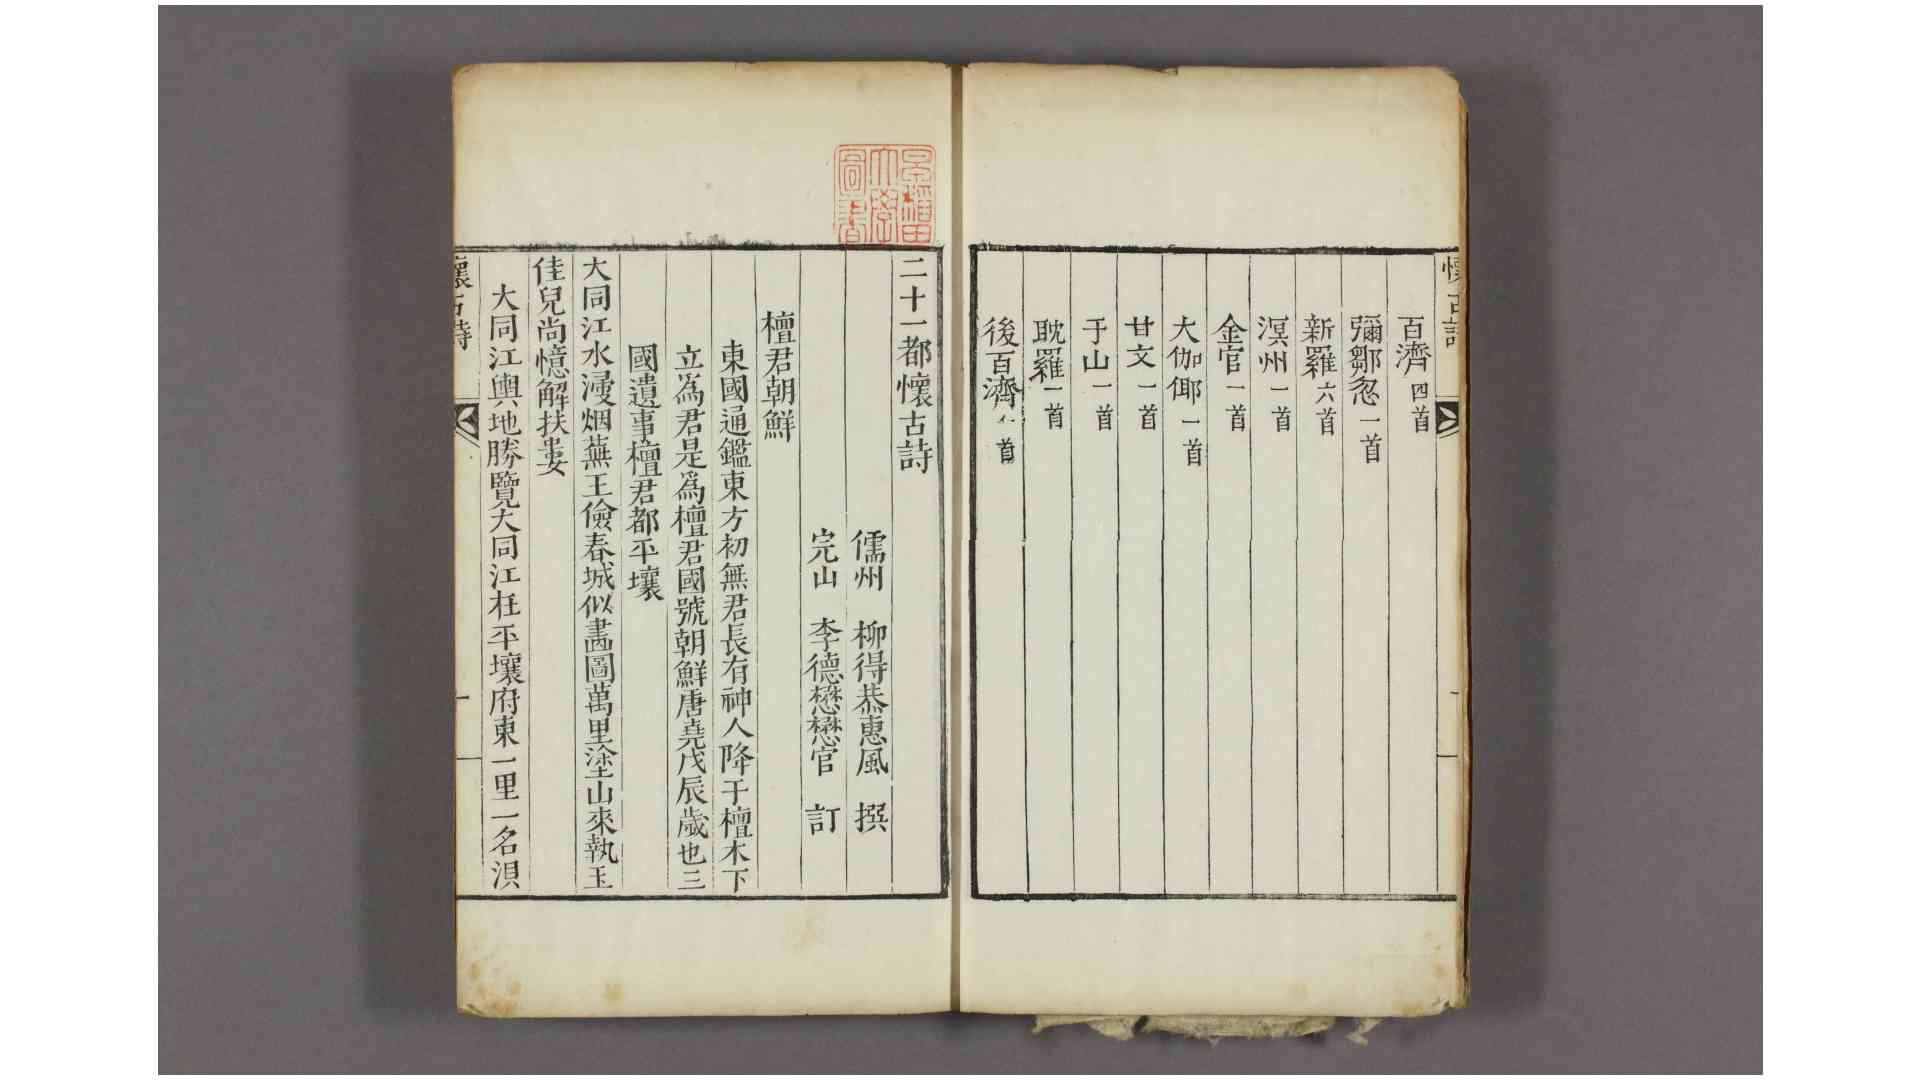 懷古詩
百濟四首
彌鄒忽一首
新羅六首
溟州一首
金官一首
大伽倻一首
甘文一首
于山一首
耽羅一首
後百濟 首
二十一都懷古詩
儒州 柳得恭惠風 撰
完山 李德懋懋官 訂
檀君朝鮮
東國通鑑東方初無君長有神人降于檀木下
立為君是為檀君國號朝鮮唐堯戊辰歲也三
國遺事檀君都平壤
大同江水浸烟蕪王儉春城似畵圖萬里塗山來執玉
佳兒尚憶解扶婁
大同江輿地勝覽大同江在平壤府東一里一名浿
懷古詩
一
早稲田大學圖書